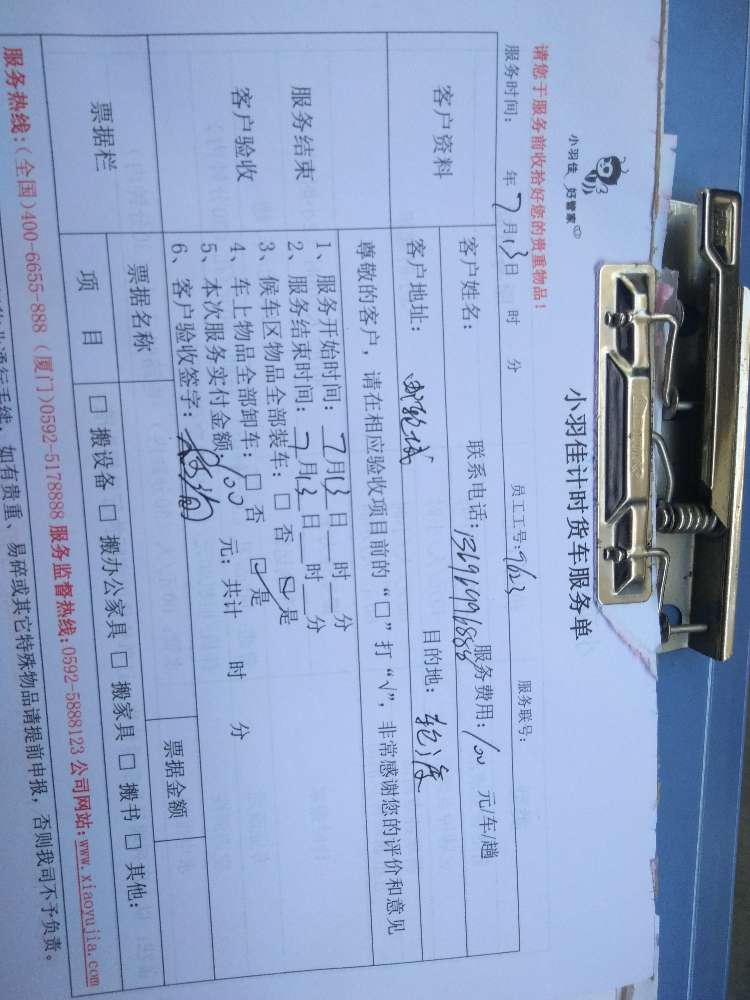 小羽佳 好管家
小羽佳计时货车服务单
请您于服务前收拾好您的贵重物品！
服务时间： 年 7 月 13 日 时 分 员工工号： 服务联号：
客户资料
客户姓名： 联系电话： 服务费用：100 元/车/趟
客户地址： 目的地：
尊敬的客户，请在相应验收项目前的“□”打“√”，非常感谢您的评价和意见
服务结束
客户验收
1、服务开始时间：7月13日 时 分
2、服务结束时间：7月13日 时 分
3、候车区物品全部装车：□ 否 ☑ 是
4、车上物品全部卸车：□ 否 ☑ 是
5、本次服务实付金额 100 元；共计 时 分
6、客户验收签字：
票据栏
票据名称 票据金额
项 目 □ 搬设备 □ 搬办公家具 □ 搬家具 □ 搬书 □ 其他：
服务热线：(全国)400-6655-888 (厦门)0592-5178888 服务监督热线：0592-5888123 公司网站：www.xiaoyujia.com
如有贵重、易碎或其它特殊物品请提前申报，否则我司不予负责。